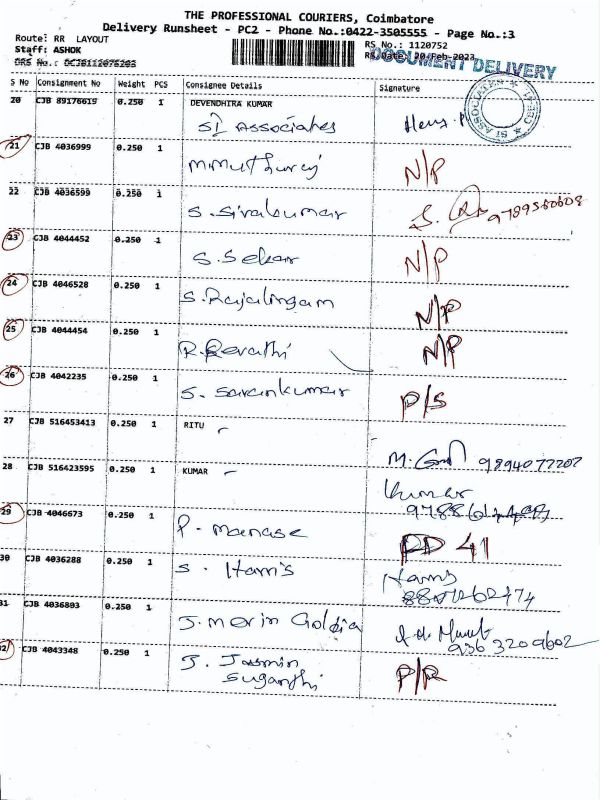 THE PROFESSIONAL COURIERS, Coimbatore
Delivery Runsheet - PC2 - Phone No.:0422-3505555 - Page No.:3
Route: RR LAYOUT
RS No.: 1120752
Staff: ASHOK
RS Date: 20-Feb-2023
DOCUMENT DELIVERY
DRS No.:
S No Consignment No Weight PCS Consignee Details Signature
20 CJB 89176619 0.250 1 DEVENDHIRA KUMAR
SI Associates
21 CJB 4036999 0.250 1 M.Muthuraj N/P
22 CJB 4036599 0.250 1 S. Sivakumar
23 CJB 4044452 0.250 1 S. Sekar N/P
24 CJB 4046528 0.250 1 S. Rajalingam N/P
25 CJB 4044454 0.250 1 R. Revathi N/P
26 CJB 4042235 0.250 1 S. Sarankumar P/S
27 CJB 516453413 0.250 1 RITU 9894077202
28 CJB 516423595 0.250 1 KUMAR Kumar
29 CJB 4046673 0.250 1 P. Manase PD 41
30 CJB 4036288 0.250 1 S. Harris Harris
31 CJB 4036803 0.250 1 J. Merin Goldia 9363209602
32 CJB 4043348 0.250 1 J. Jasmin P/R
Suganthi